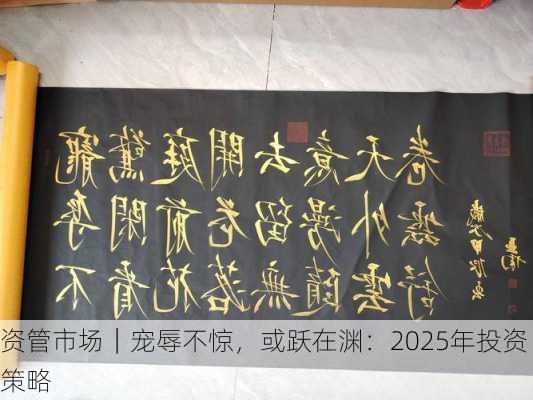 寵辱不
驚閑看
庭前花
開花落
去留無
意漫隨
天外雲
卷雲舒
资管市场｜宠辱不惊，或跃在渊：2025年投资
策略